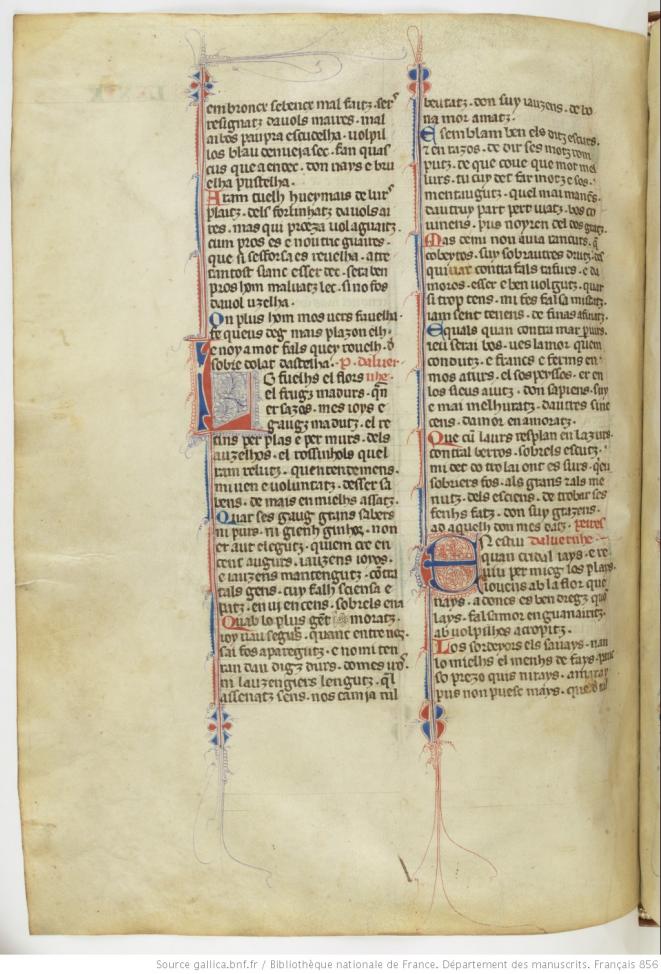 em bronce sebence mal faitz. ser
resignatz dauols maires. mal
aibos paupra escudelha. uolpil
los blau denueia sec. fan quas
cus que a endec. don nays e bru
elha pustelha.
Aram tuelh hueymais de lurs
plaitz. dels forlinhatz dauols ai
res. mas qui proeza uol aguaitz.
cum pros es e nouric guaires.
que sesforsa es reuelha. atre
tan tost sianc esser dec. seta ben
pros hom maluatz lec. si no fos
dauol uzelha.
On plus hom mos uers fauelha
fe queus deg mais plazon elh.
e no y a mot fals quey rouelh. 
sobre dolat dastelha. P. daluer
fuelhs el flors nhe.
el frugz madurs. 
er sazos. mes ioys e
gaugz madutz. el re
tins per plas e per murs. dels
auzelhos. el rossinhols quel
ram relutz. quen tendemens.
mi uen e uoluntatz. desser sa
bens. de mais en mielhs assatz.
Quar ses gaug grans sabers
ni purs. ni gienh ginhos. non
er aut elegutz. quiem cre en
cent augurs. iauzens ioyos.
e iauzens mantengutz. contra
tals gens. cuy falh sciensa e
putz. en uiuen cens. sobrels ena
Quab lo plus gent moratz.
ioy uau segurs. quanc entre nos.
sai fos aparegutz. e no mi ten
tan dau digz durs. domes uros.
ni lauzengiers lengutz. 
assenatz sens. nos camia tul
beutatz. don suy iauzens. de bo
na mor amatz.
E semblam ben els ditz escurs.
en razos. de dir ses motz rom
putz. de que coue que mot me
lurs. tu cuy det far motz e sos.
mentaugutz. quel mai mances
dautruy part pert uatz. bos co
uinens. pus noyren del dos gratz.
Mas demi non auia rancurs. 
cobeytos. suy sobrautres drutz.
qui uas contra fals tafurs. e da
moros. esser e ben uolgutz. quar
si trop tens. mi fes falsa mistatz.
iam sent tenens. de finas afiiatz.
Equals quan contra mar purs.
ieu serai bos. ues lamor quem
condutz. e francs e ferms en
mos aturs. el sos peyssos. er en
los sieus aiutz. don sapiens. suy
e mai melhuratz. dautres sine
cens. damor en amoratz.
Que cum laurs resplan en lazurs.
contral bertos. sobrels escutz.
mi det do tro lai ont es surs. queu
sobriers fos. als grans ials me
nutz. dels esciens. de trobar ses
fenhs fatz. don suy grazens.
ad aquelh don mes datz. Peires
En estiu daluernhe.
quan cridal iays. e re
uiu per mieg los plays.
Iouens ab la flor que
nays. adoncs es ben dregz que
lays. fals amor enguanairitz.
ab uolpilhs acropitz.
Los sordeyors els sauays. nan
lo mielhs el menhs de fays.
so prezo quis nirays. amar
pus non puesc mays. que